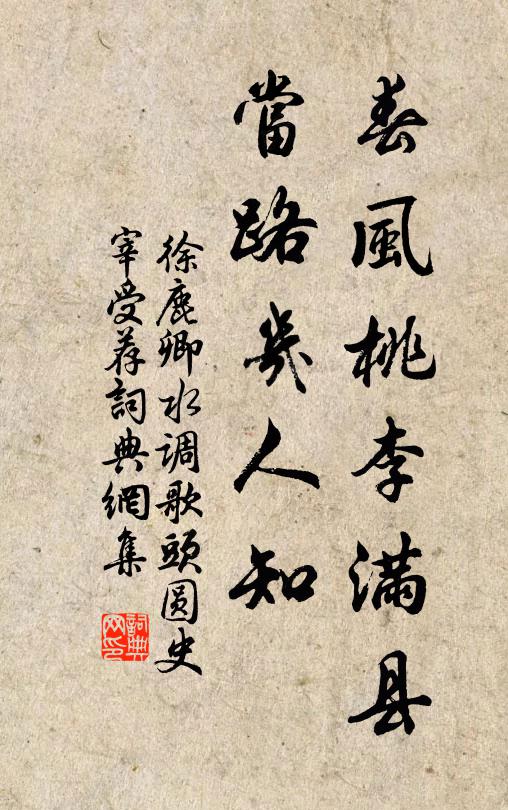 春風桃李满县
當路幾人知
徐鹿卿水调歌頭圆史
宰受荐詞典網集
詞典网印